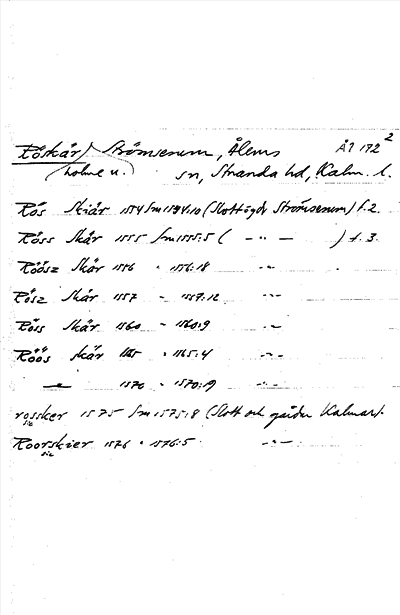 Röskär) Strömserum, Ålems Ål 172²
(holme u.) sn, Stranda hd, Kalm. l.
Rös Skiär 1554 Sm 1554:10 (Slottsgdr Strömserum) f. 2.
Röss Skär 1555 Sm 1555:5 ( -"- — ) f. 3.
Röösz Skär 1556 " 1556:18 -"-
Rösz Skär 1557 - 1557:12 -"-
Röis Skär 1560 - 1560:9 -"-
Röös skär 1565 " 1565:4 -"-
— 1570 - 1570:19 -"-
rossker 1575 Sm 1575:8 (Slott och gårdar Kalmar).
sic
Roorskier 1576 " 1576:5 -"-
sic